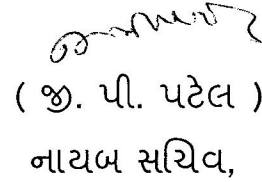 ( જી. પી. પટેલ )
નાયબ સચિવ,